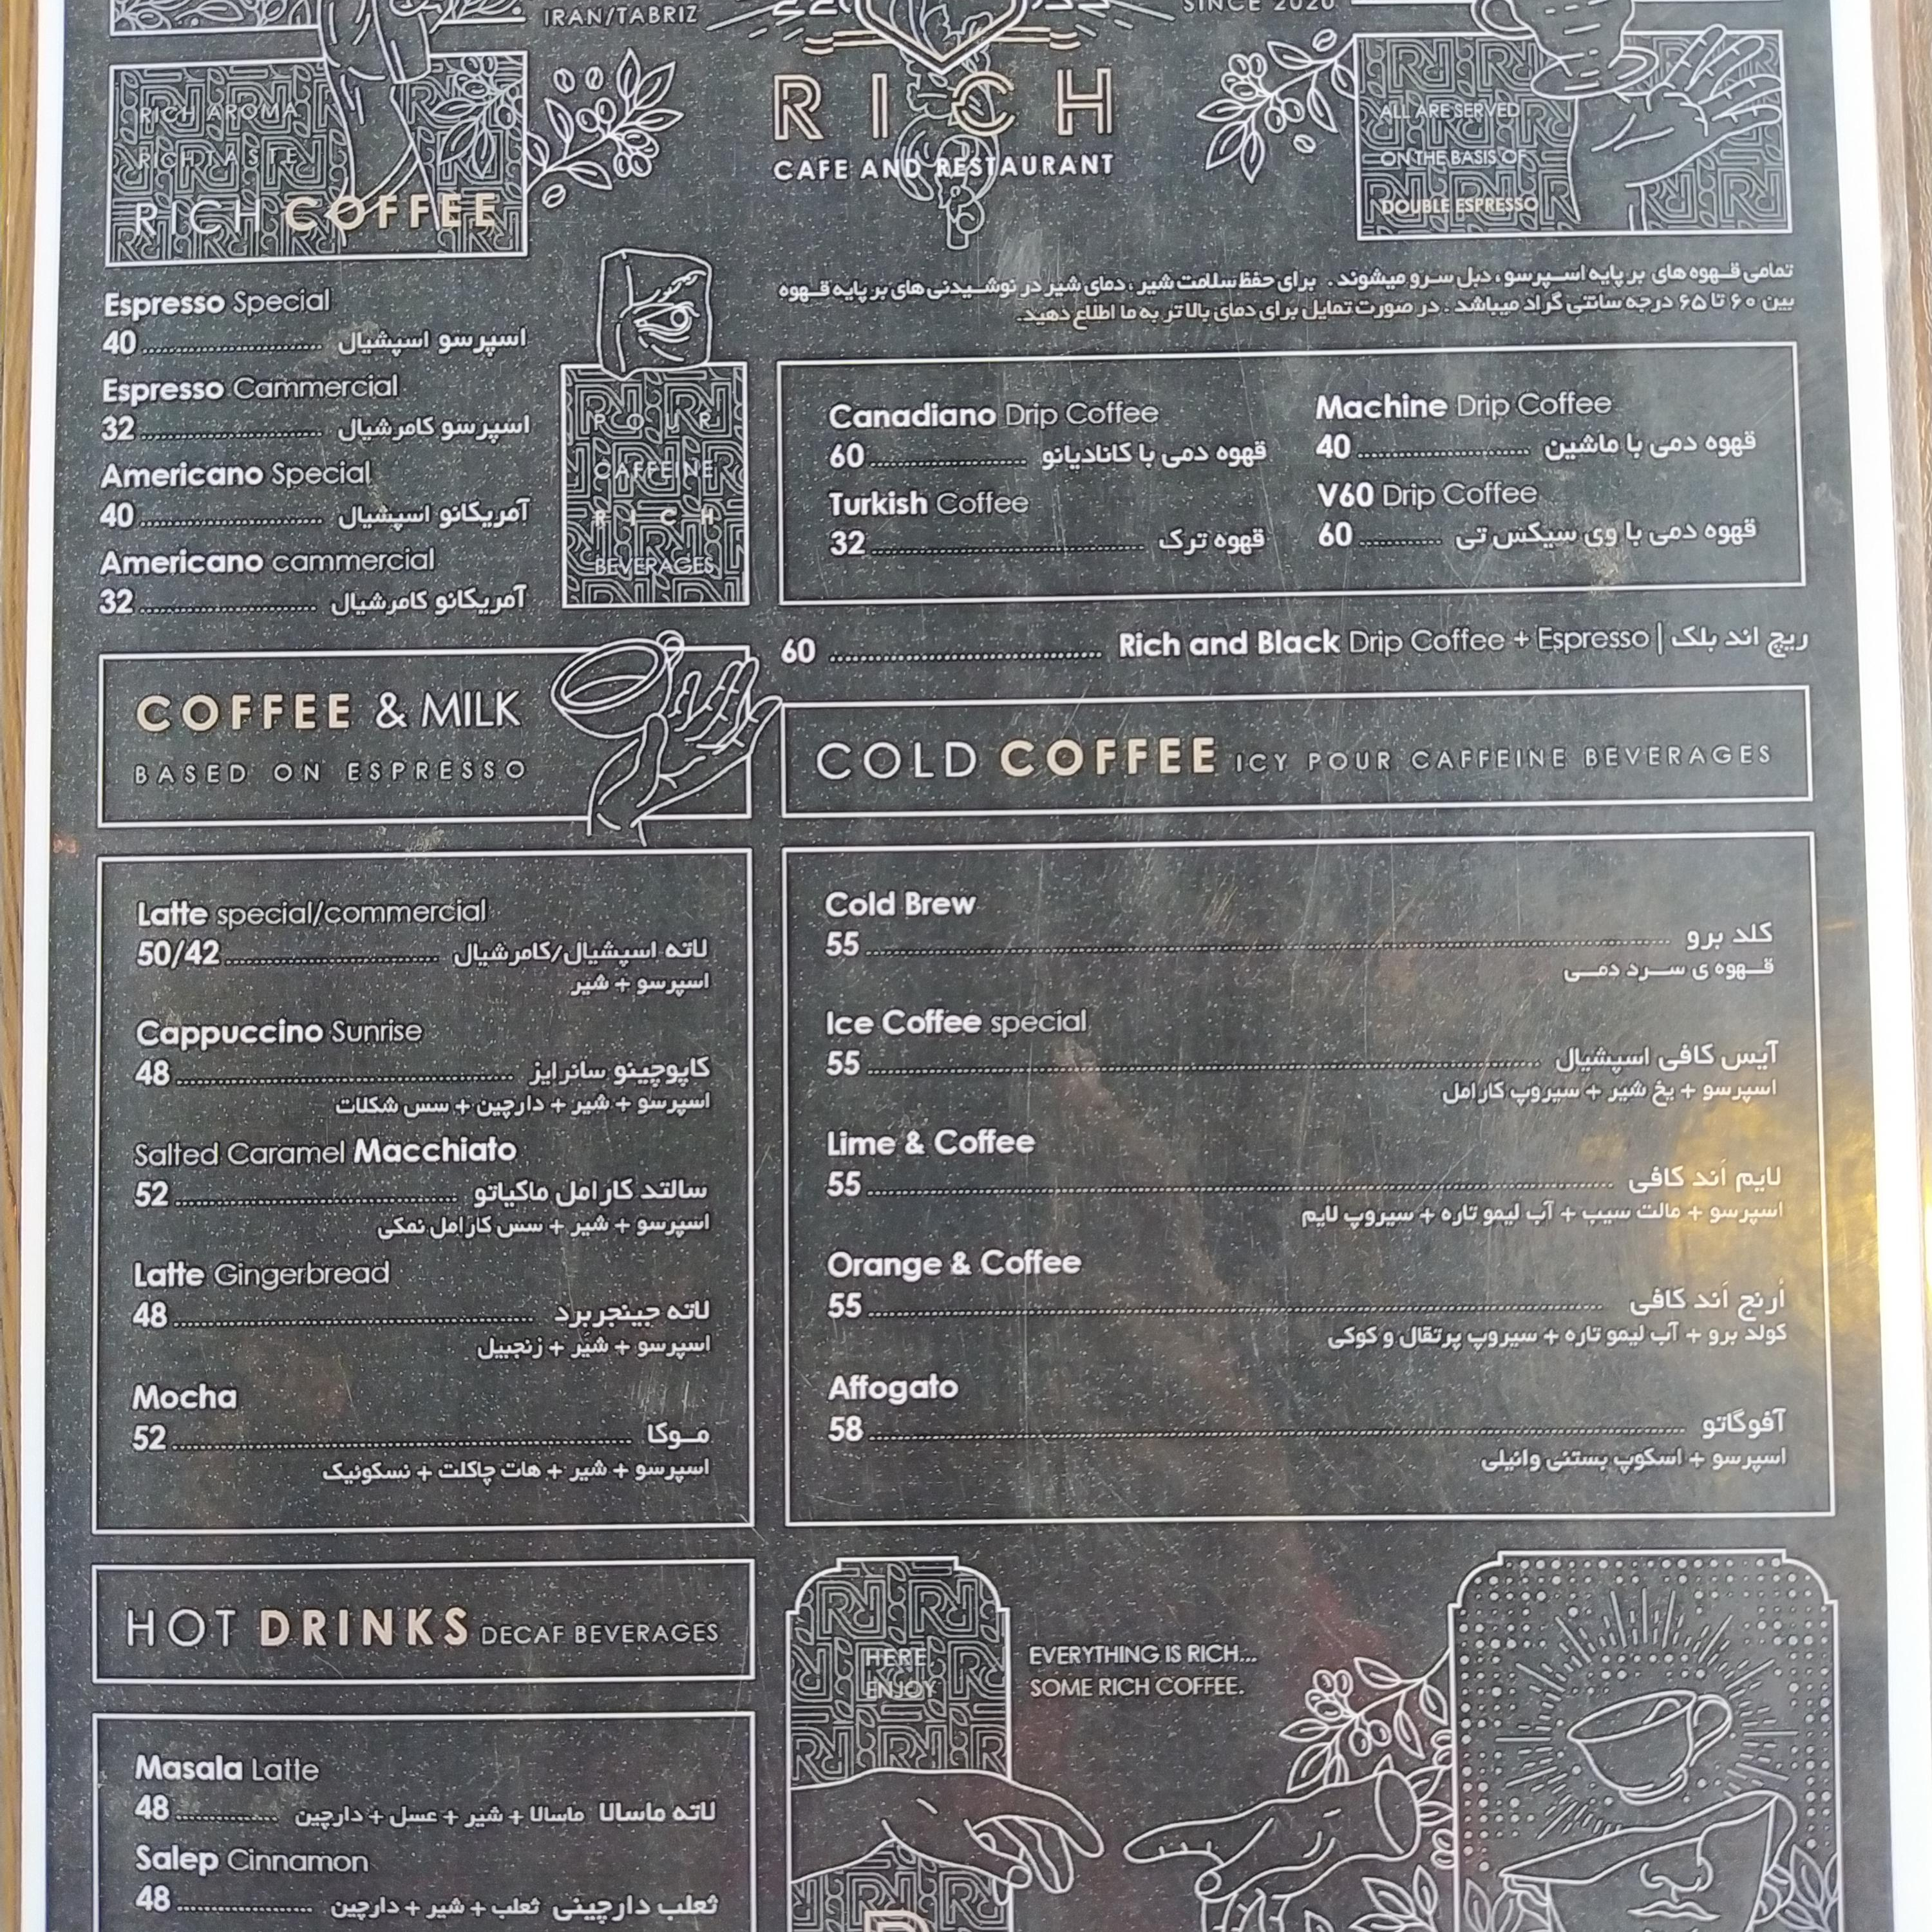 IRAN/TABRIZ
SINCE 2020
RICH
CAFE AND RESTAURANT
RICH AROMA
RICH TASTE
RICH COFFEE
ALL ARE SERVED
ON THE BASIS OF
DOUBLE ESPRESSO
تمامی قهوه های بر پایه اسپرسو ، دبل سرو میشوند . برای حفظ سلامت شیر ، دمای شیر در نوشیدنی های بر پایه قهوه
بین ۶۰ تا ۶۵ درجه سانتی گراد میباشد . در صورت تمایل برای دمای بالا تر به ما اطلاع دهید.
Espresso Special
40 اسپرسو اسپشیال
Espresso Cammercial
32 اسپرسو کامرشیال
Americano Special
40 آمریکانو اسپشیال
Americano cammercial
32 آمریکانو کامرشیال
POUR
CAFFEINE
RICH
BEVERAGES
Canadiano Drip Coffee
60 قهوه دمی با کانادیانو
Turkish Coffee
32 قهوه ترک
Machine Drip Coffee
40 قهوه دمی با ماشین
V60 Drip Coffee
60 قهوه دمی با وی سیکس تی
60 Rich and Black Drip Coffee + Espresso | ریچ اند بلک
COFFEE & MILK
BASED ON ESPRESSO
Latte special/commercial
50/42 لاته اسپشیال/کامرشیال
اسپرسو + شیر
Cappuccino Sunrise
48 کاپوچینو سانرایز
اسپرسو + شیر + دارچین + سس شکلات
Salted Caramel Macchiato
52 سالتد کارامل ماکیاتو
اسپرسو + شیر + سس کارامل نمکی
Latte Gingerbread
48 لاته جینجربرد
اسپرسو + شیر + زنجبیل
Mocha
52 موکا
اسپرسو + شیر + هات چاکلت + نسکوئیک
COLD COFFEE ICY POUR CAFFEINE BEVERAGES
Cold Brew
55 کلد برو
قهوه ی سرد دمی
Ice Coffee special
55 آیس کافی اسپشیال
اسپرسو + یخ شیر + سیروپ کارامل
Lime & Coffee
55 لایم اند کافی
اسپرسو + مالت سیب + آب لیمو تازه + سیروپ لایم
Orange & Coffee
55 اُرنج اَند کافی
کولد برو + آب لیمو تازه + سیروپ پرتقال و کوکی
Affogato
58 آفوگاتو
اسپرسو + اسکوپ بستنی وانیلی
HOT DRINKS DECAF BEVERAGES
Masala Latte
48 لاته ماسالا ماسالا + شیر + عسل + دارچین
Salep Cinnamon
48 ثعلب دارچینی ثعلب + شیر + دارچین
HERE
ENJOY
EVERYTHING IS RICH...
SOME RICH COFFEE.